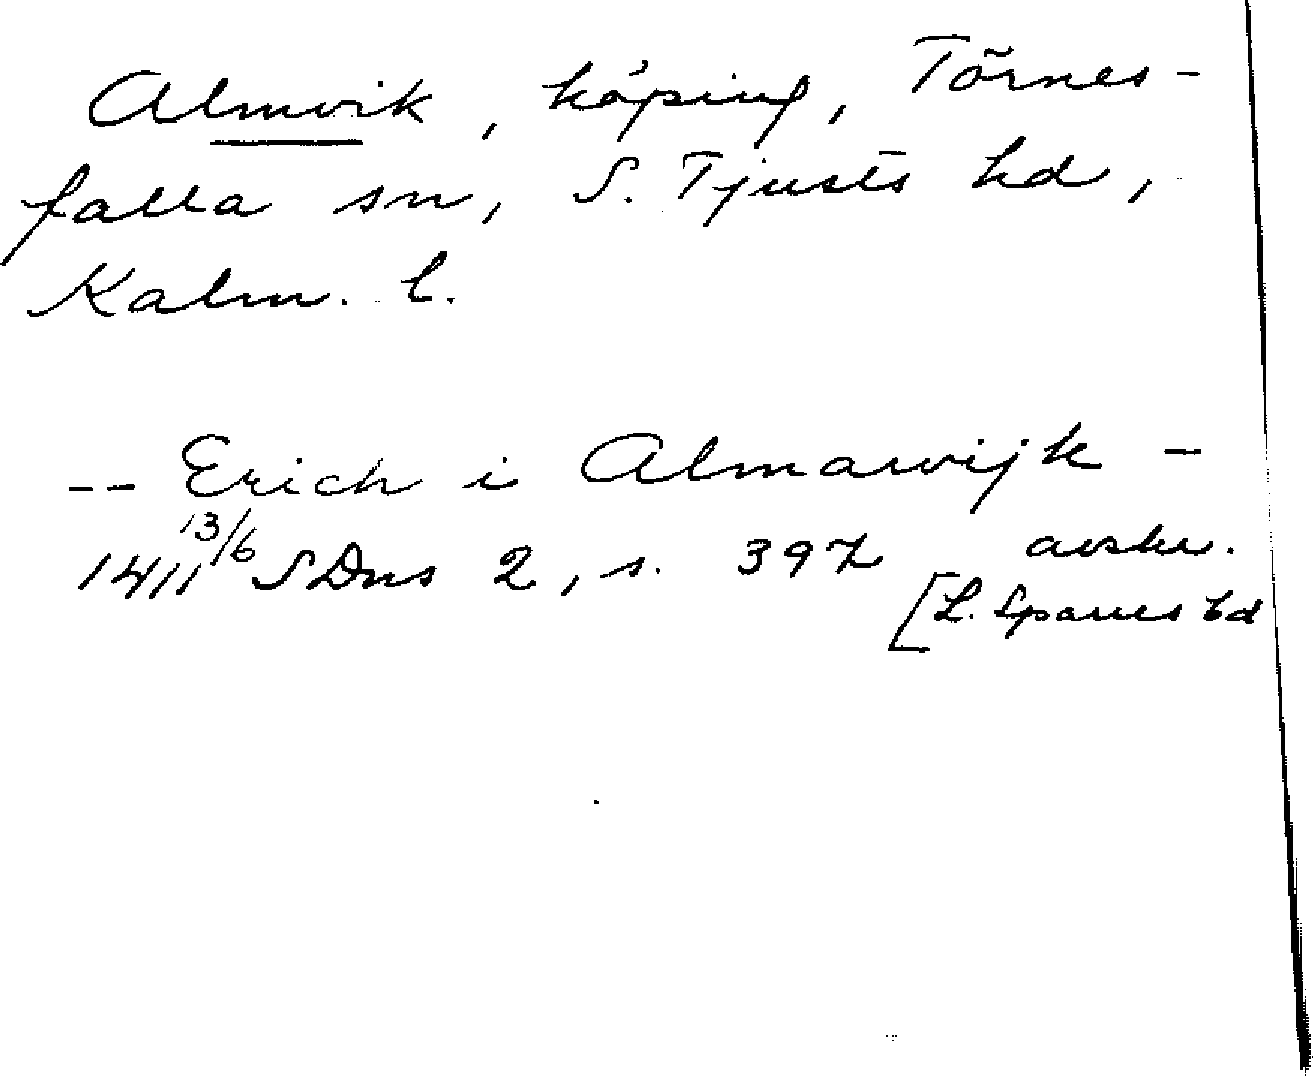 Almvik, köping, Törnes-
falla sn, S. Tjusts hd,
Kalm. l.
-- Erich i Almawijk -
1411 13/6 SDns 2, s. 397 avskr.
[L. Sparres bd